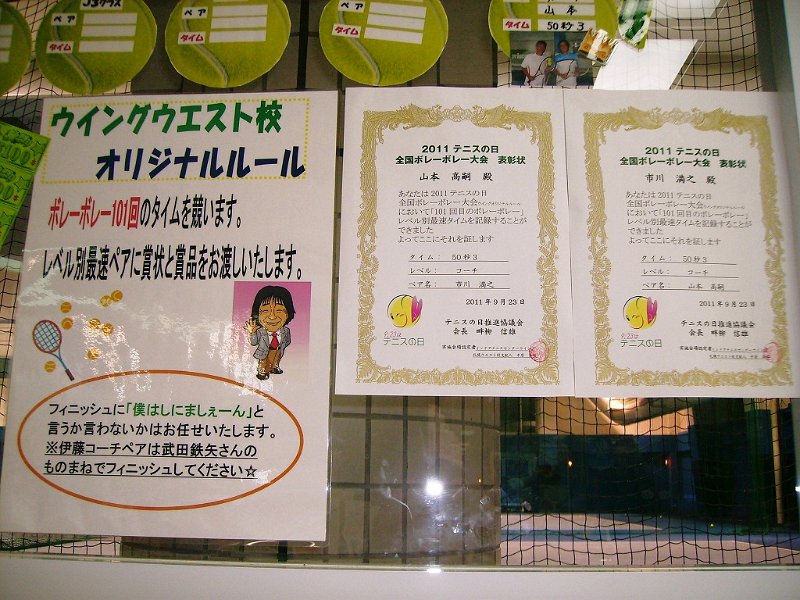 J3クラス
タイム
ペア
タイム
ペア
タイム
山本
タイム 50秒3
ウイングウエスト校
オリジナルルール
ボレーボレー101回のタイムを競います。
レベル別最速ペアに賞状と賞品をお渡しいたします。
フィニッシュに「僕はしにましぇーん」と
言うか言わないかはお任せいたします。
※伊藤コーチペアは武田鉄矢さんの
ものまねでフィニッシュしてください☆
2011 テニスの日
全国ボレーボレー大会 表彰状
山本 高嗣 殿
あなたは2011テニスの日
全国ボレーボレー大会
において「101回目のボレーボレー」
レベル別最速タイムを記録することが
できました
よってここにそれを証します
タイム: 50秒3
レベル: コーチ
ペア名: 市川 満之
2011年9月23日
9/23は
テニスの日
テニスの日推進協議会
会長 畔柳 信雄
2011 テニスの日
全国ボレーボレー大会 表彰状
市川 満之 殿
あなたは2011テニスの日
全国ボレーボレー大会
において「101回目のボレーボレー」
レベル別最速タイムを記録することが
できました
よってここにそれを証します
タイム: 50秒3
レベル: コーチ
ペア名: 山本 高嗣
2011年9月23日
9/23は
テニスの日
テニスの日推進協議会
会長 畔柳 信雄